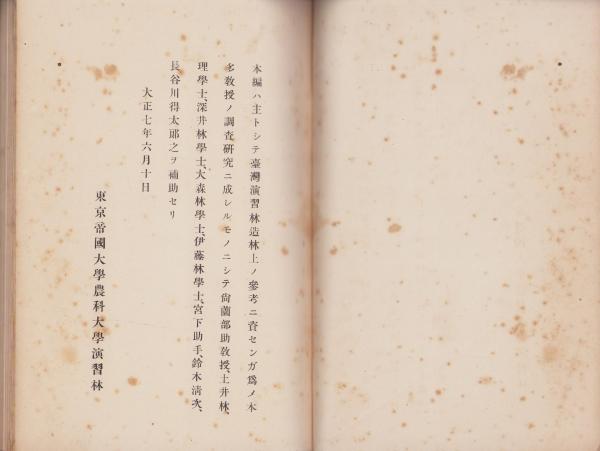 本編ハ主トシテ臺灣演習林造林上ノ參考ニ資センガ爲ノ本
多敎授ノ調査研究ニ成レルモノニシテ尙薗部助敎授、土井林、
理學士、深井林學士、大森林學士、伊藤林學士、宮下助手、鈴木淸次、
長谷川得太郞之ヲ補助セリ
大正七年六月十日
東京帝國大學農科大學演習林